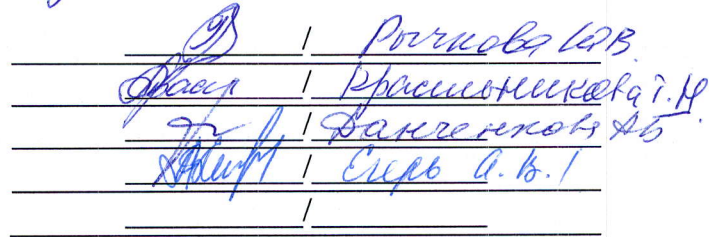 / Рычкова Ю.В.
/ Красильникова Т.Н
/ Данченкова А.Б.
/ Егерь А.В. /
/